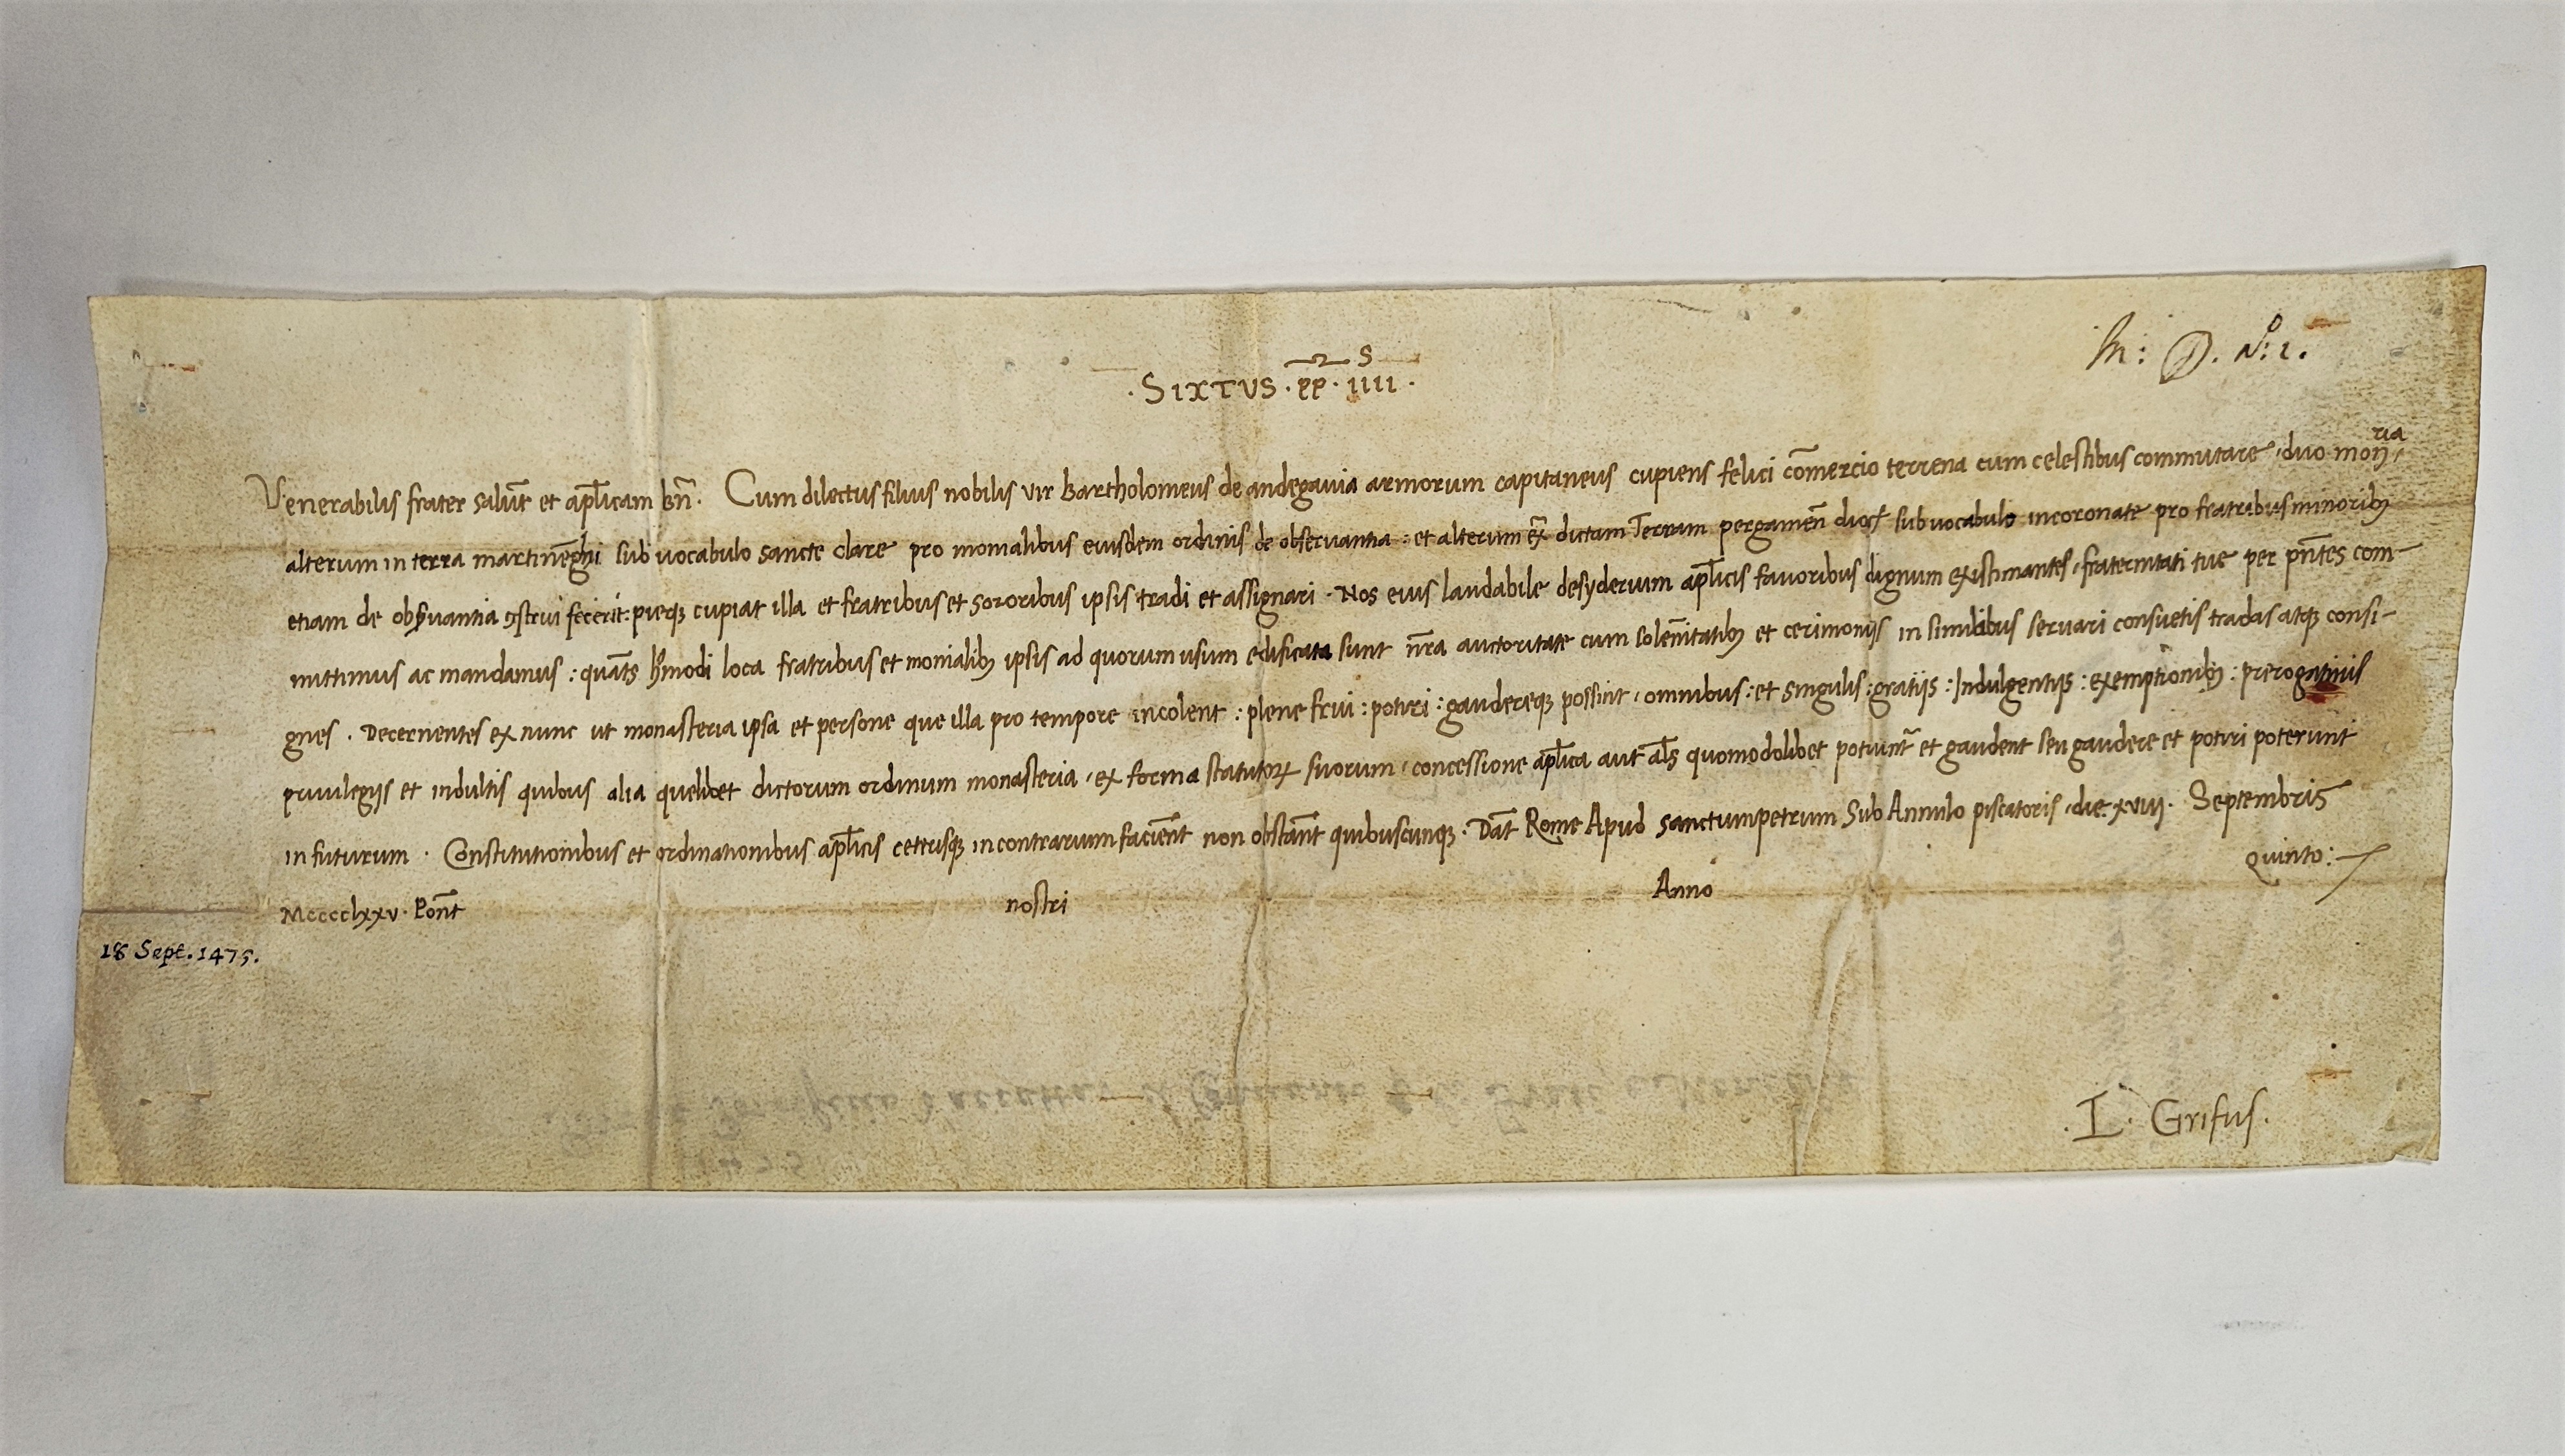 M: D. N:o 1.
S
· SIXTUS · PP · IIII ·
Venerabilis frater salut̄ et ap̄licam bn̄. Cum dilectus filius nobilis vir Bartholomeus de andegavia armorum capitaneus cupiens felici cōmercio terrena cum celestibus commutare, duo mon̄ria,
alterum in terra martinēghi sub vocabulo sancte clare pro monialibus eiusdem ordinis de observantia : et alterum ex̄ dictam Terram pergamen̄ dioc̄ sub vocabulo incoronate pro fratribus minorib;
etiam de obs̄vantia ꝯstrui fecerit : pieq; cupiat illa et fratribus et sororibus ipsis tradi et assignari . Nos eius laudabile desyderium ap̄licis favoribus dignum existimantes, fraternitati tue per pn̄tes com-
mittimus ac mandamus : quāts hm̄odi loca fratribus et monialib; ipsis ad quorum usum edificata sunt nr̄a auctoritate cum solen̄itatib; et cerimonijs in similibus servari consuetis tradas atq; consi-
gnes . Decernentes ex nunc ut monasteria ipsa et persone que illa pro tempore incolent : plene frui : potiri : gaudereq; possint, omnibus : et singulis : gratijs : Indulgentijs : exemptionib; : prerogativis
privilegijs et indultis quibus alia quelibet dictorum ordinum monasteria, ex forma statutoꝝ suorum, concessione ap̄lica aut al̄s quomodolibet potiunt̄ et gaudent seu gaudere et potiri poterunt
in futurum . Constitutionibus et ordinationibus ap̄licis ceterisq; in contrarium faciēnt non obstān̄t quibuscunq; . Dat̄ Rome Apud sanctumpetrum Sub Annulo piscatoris, die . xviij . Septembris
Mcccclxxv . Pont̄ nostri Anno Quinto :
18 Sept. 1475.
. I . Grifus .